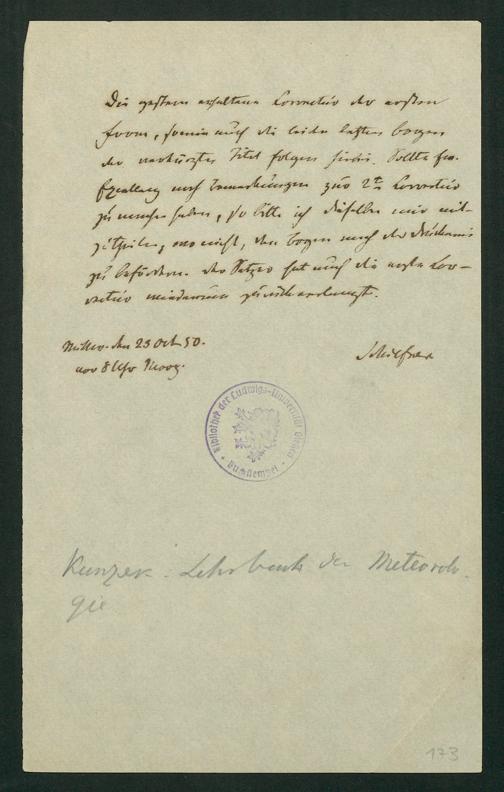 Die gestern erhaltene Correctur der ersten
Form, sowie auch die beiden letzten Bogen
der verkürzte Titel folgen hierin. Sollte Hr.
noch Bemerkungen zur 2ten Correctur
zu machen haben, so bitte ich dieselben mir mit-
zutheilen, wo nicht, den Bogen nach der Druckerei
zu befördern. Der Setzer hat auch die erste Cor-
rectur wiederum zurückverlangt.
den 23 Oct 50.
vor 8 Uhr Morg.
Bibliothek der Ludwigs-Universität Giessen
Buchstempel
Kunzek: Lehrbuch der Meteorolo-
gie
173